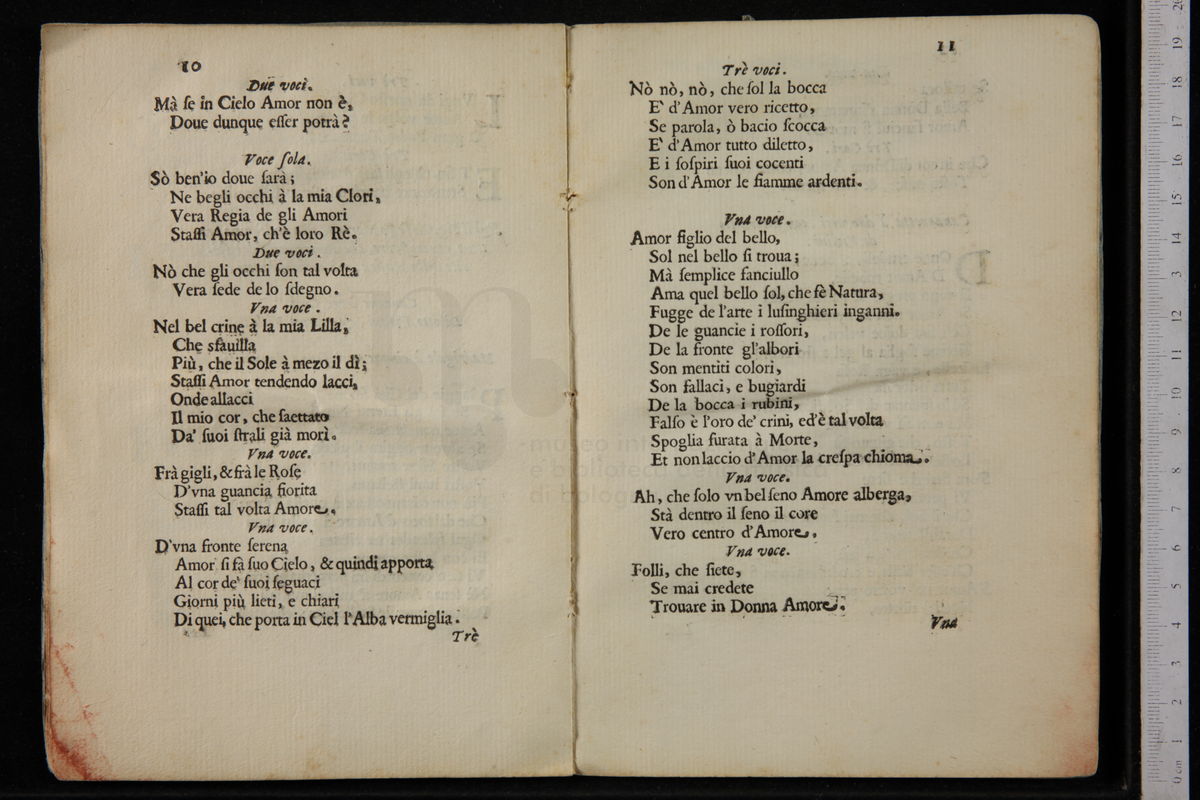 10
Due voci.
Mà ſe in Cielo Amor non è,
Doue dunque eſſer potrà?
Voce ſola.
Sò ben'io doue ſarà;
Ne begli occhi à la mia Clori,
Vera Regia de gli Amori
Staſſi Amor, ch'è loro Rè.
Due voci.
Nò che gli occhi ſon tal volta
Vera ſede de lo ſdegno.
Vna voce.
Nel bel crine à la mia Lilla,
Che sfauilla
Più, che il Sole à mezo il dì;
Staſſi Amor tendendo lacci,
Onde allacci
Il mio cor, che ſaettato
Da' ſuoi ſtrali già morì.
Vna voce.
Frà gigli, & frà le Roſe
D'vna guancia fiorita
Staſſi tal volta Amore.
Vna voce.
D'vna fronte ſerena
Amor ſi fà ſuo Cielo, & quindi apporta
Al cor de' ſuoi ſeguaci
Giorni più lieti, e chiari
Di quei, che porta in Ciel l'Alba vermiglia.
Trè
11
Trè voci.
Nò nò, nò, che ſol la bocca
E' d'Amor vero ricetto,
Se parola, ò bacio ſcocca
E' d'Amor tutto diletto,
E i ſoſpiri ſuoi cocenti
Son d'Amor le fiamme ardenti.
Vna voce.
Amor figlio del bello,
Sol nel bello ſi troua;
Mà ſemplice fanciullo
Ama quel bello ſol, che fè Natura,
Fugge de l'arte i luſinghieri inganni.
De le guancie i roſſori,
De la fronte gl'albori
Son mentiti colori,
Son fallaci, e bugiardi
De la bocca i rubini,
Falſo è l'oro de' crini, ed'è tal volta
Spoglia furata à Morte,
Et non laccio d'Amor la creſpa chioma.
Vna voce.
Ah, che ſolo vn bel ſeno Amore alberga,
Stà dentro il ſeno il core
Vero centro d'Amore,
Vna voce.
Folli, che ſiete,
Se mai credete
Trouare in Donna Amore.
Vna